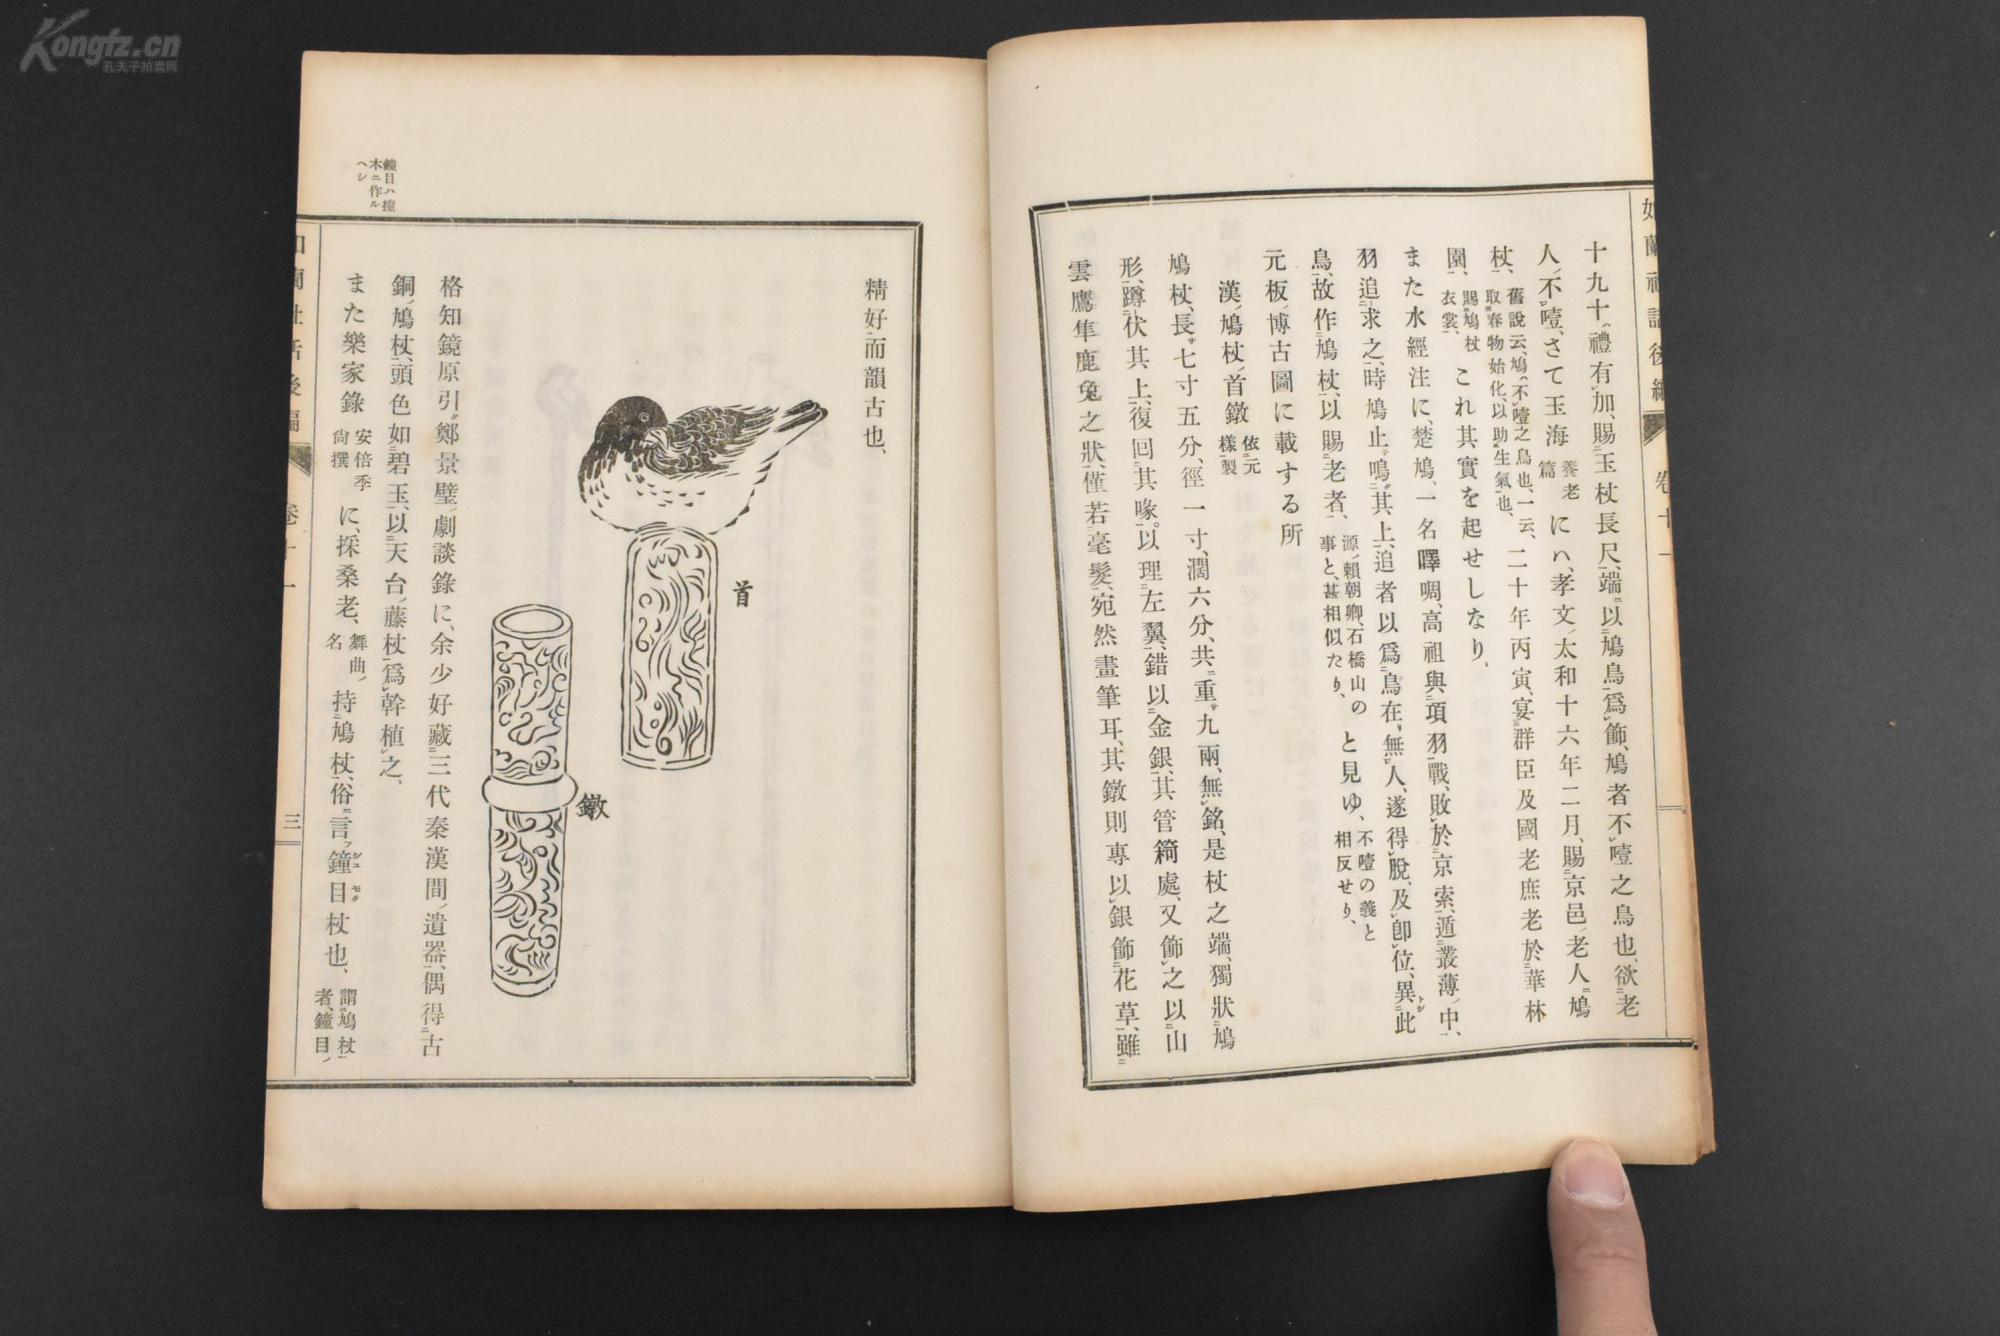 Kongfz.cn
孔夫子拍卖网
十九十(禮有加、賜玉杖長尺、端以鳩鳥爲飾、鳩者不噎之鳥也、欲老
人不噎、さて玉海 養老篇 にハ、孝文太和十六年二月、賜京邑老人鳩
杖、 舊說云、鳩(不噎之鳥也、一云、取春物始化、以助生氣也、 二十年丙寅、宴群臣及國老庶老於華林
園、 賜鳩杖衣裳、 これ其實を起せしなり、
また水經注に、楚鳩、一名嘽啁、高祖與項羽戰、敗於京索、遁叢薄中、
羽追求之、時鳩止鳴其上、追者以爲鳥在無人、遂得脫、及卽位、異此
鳥、故作鳩杖、以賜老者、 源賴朝卿、石橋山の事と、甚相似たり、 と見ゆ、 不噎の義と相反せり、
元板博古圖に載する所
漢鳩杖首鐓 依元樣製
鳩杖、長七寸五分、徑一寸、濶六分、共重九兩、無銘、是杖之端、獨狀鳩
形、蹲伏其上、復回其喙。以理左翼、錯以金銀、其管籥處、又飾之以山
雲鷹隼鹿兔之狀、僅若毫髮、宛然畫筆耳、其鐓則專以銀飾花草、雖
精好而韻古也、
首
鐓
格知鏡原引鄭景璧劇談錄に、余少好藏三代秦漢間遺器、偶得古
銅鳩杖、頭色如碧玉、以天台藤杖爲幹植之、
また樂家錄 安倍季尙撰 に、採桑老、 舞曲名 持鳩杖、俗言鐘目杖也、 謂鳩杖者、鐘目
鐘目ハ撞
木ニ作ル
ヘシ
卷十一
三